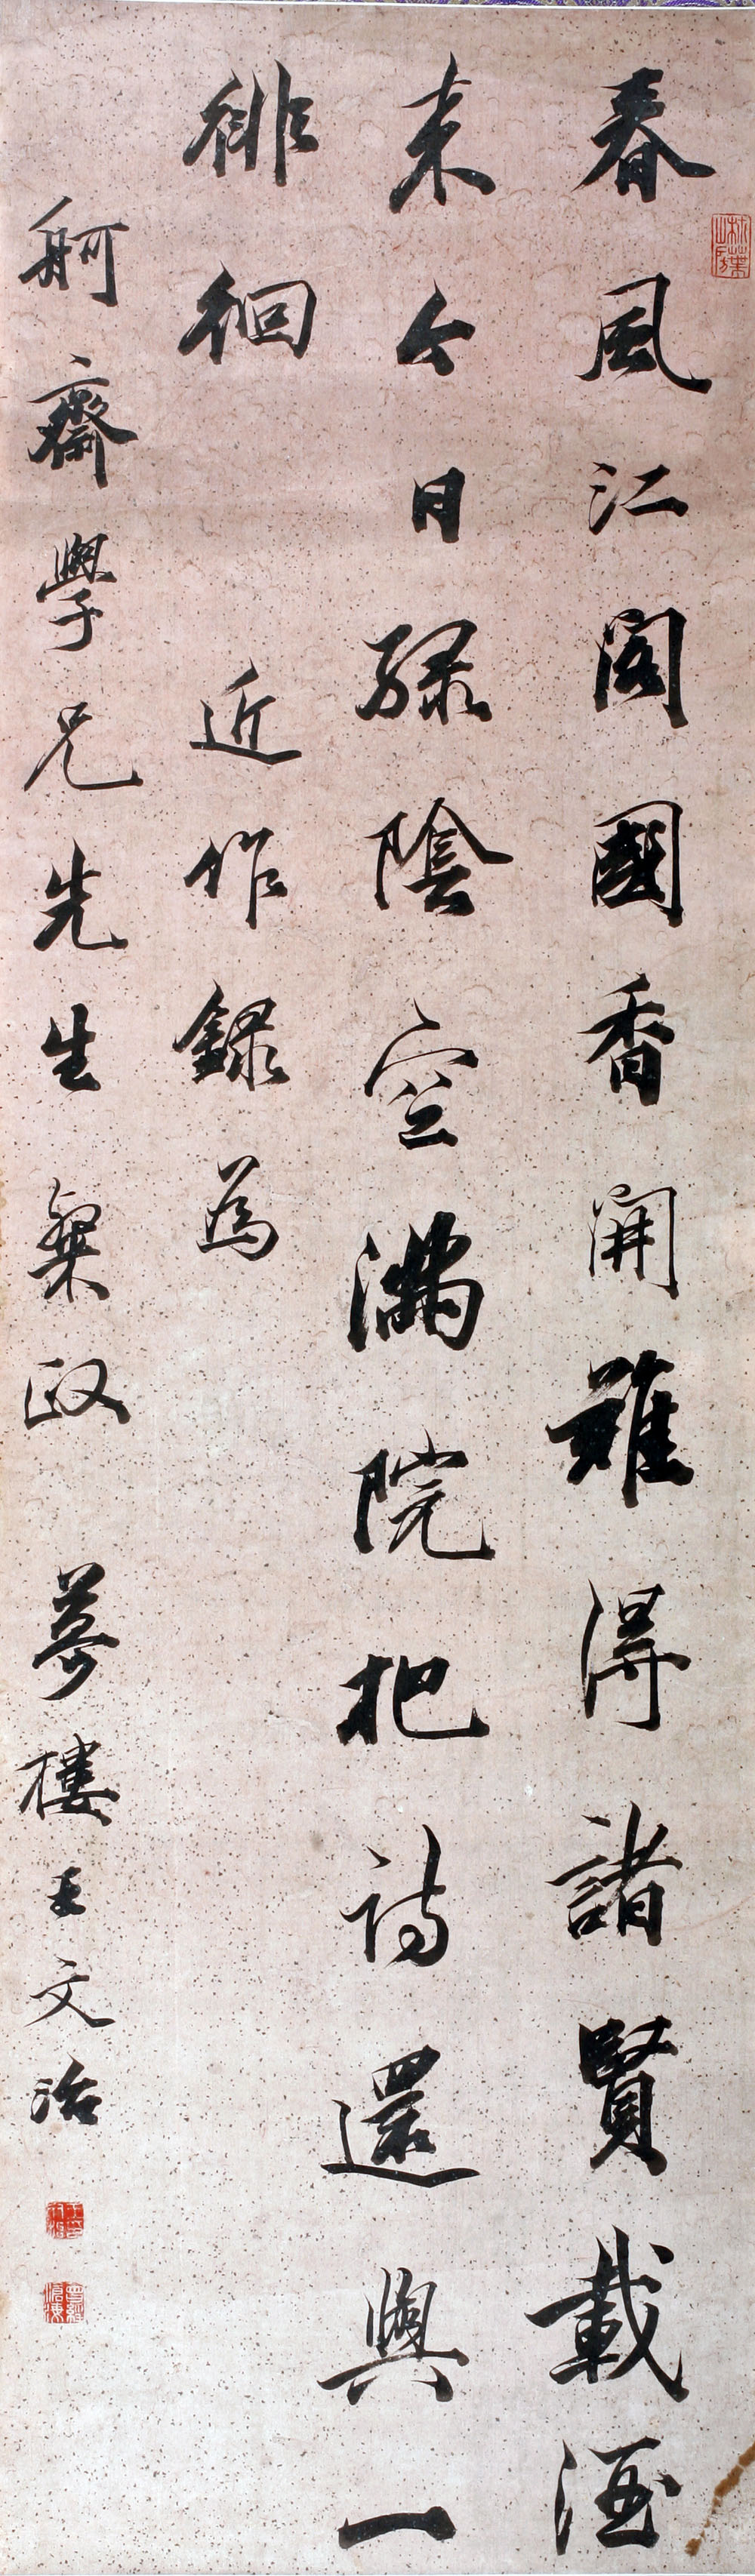 春風江閣國香開難得諸賢載酒
来今日緑陰空滿院把詩還與一
徘徊 近作錄為
舸齋學兄先生粲政 夢樓王文治